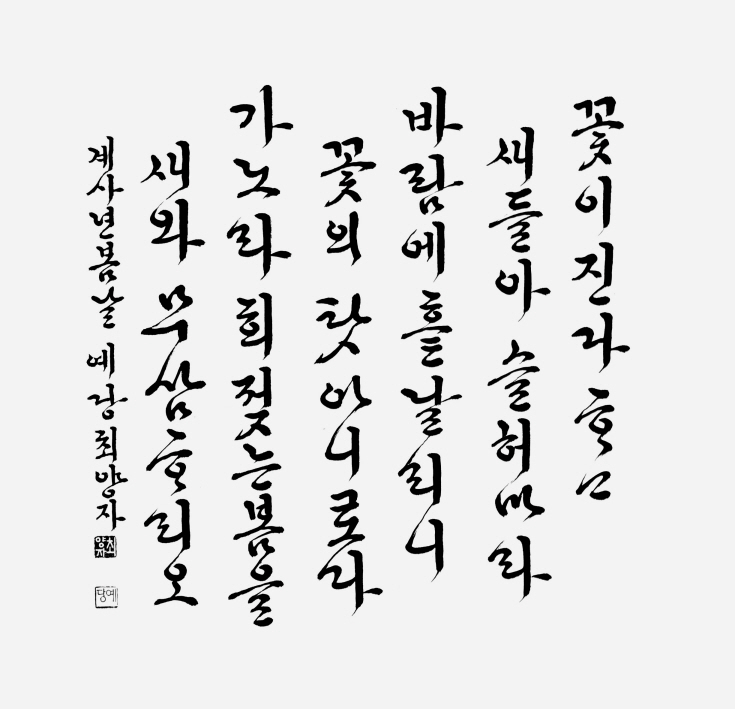 꽃이 진다 ᄒᆞ고
새들아 슬허마라
바람에 흩날리니
꽃의 탓 아니로다
가노라 희짖는봄을
새와 무삼ᄒᆞ리오
계사년봄날 예당 최양자
예당